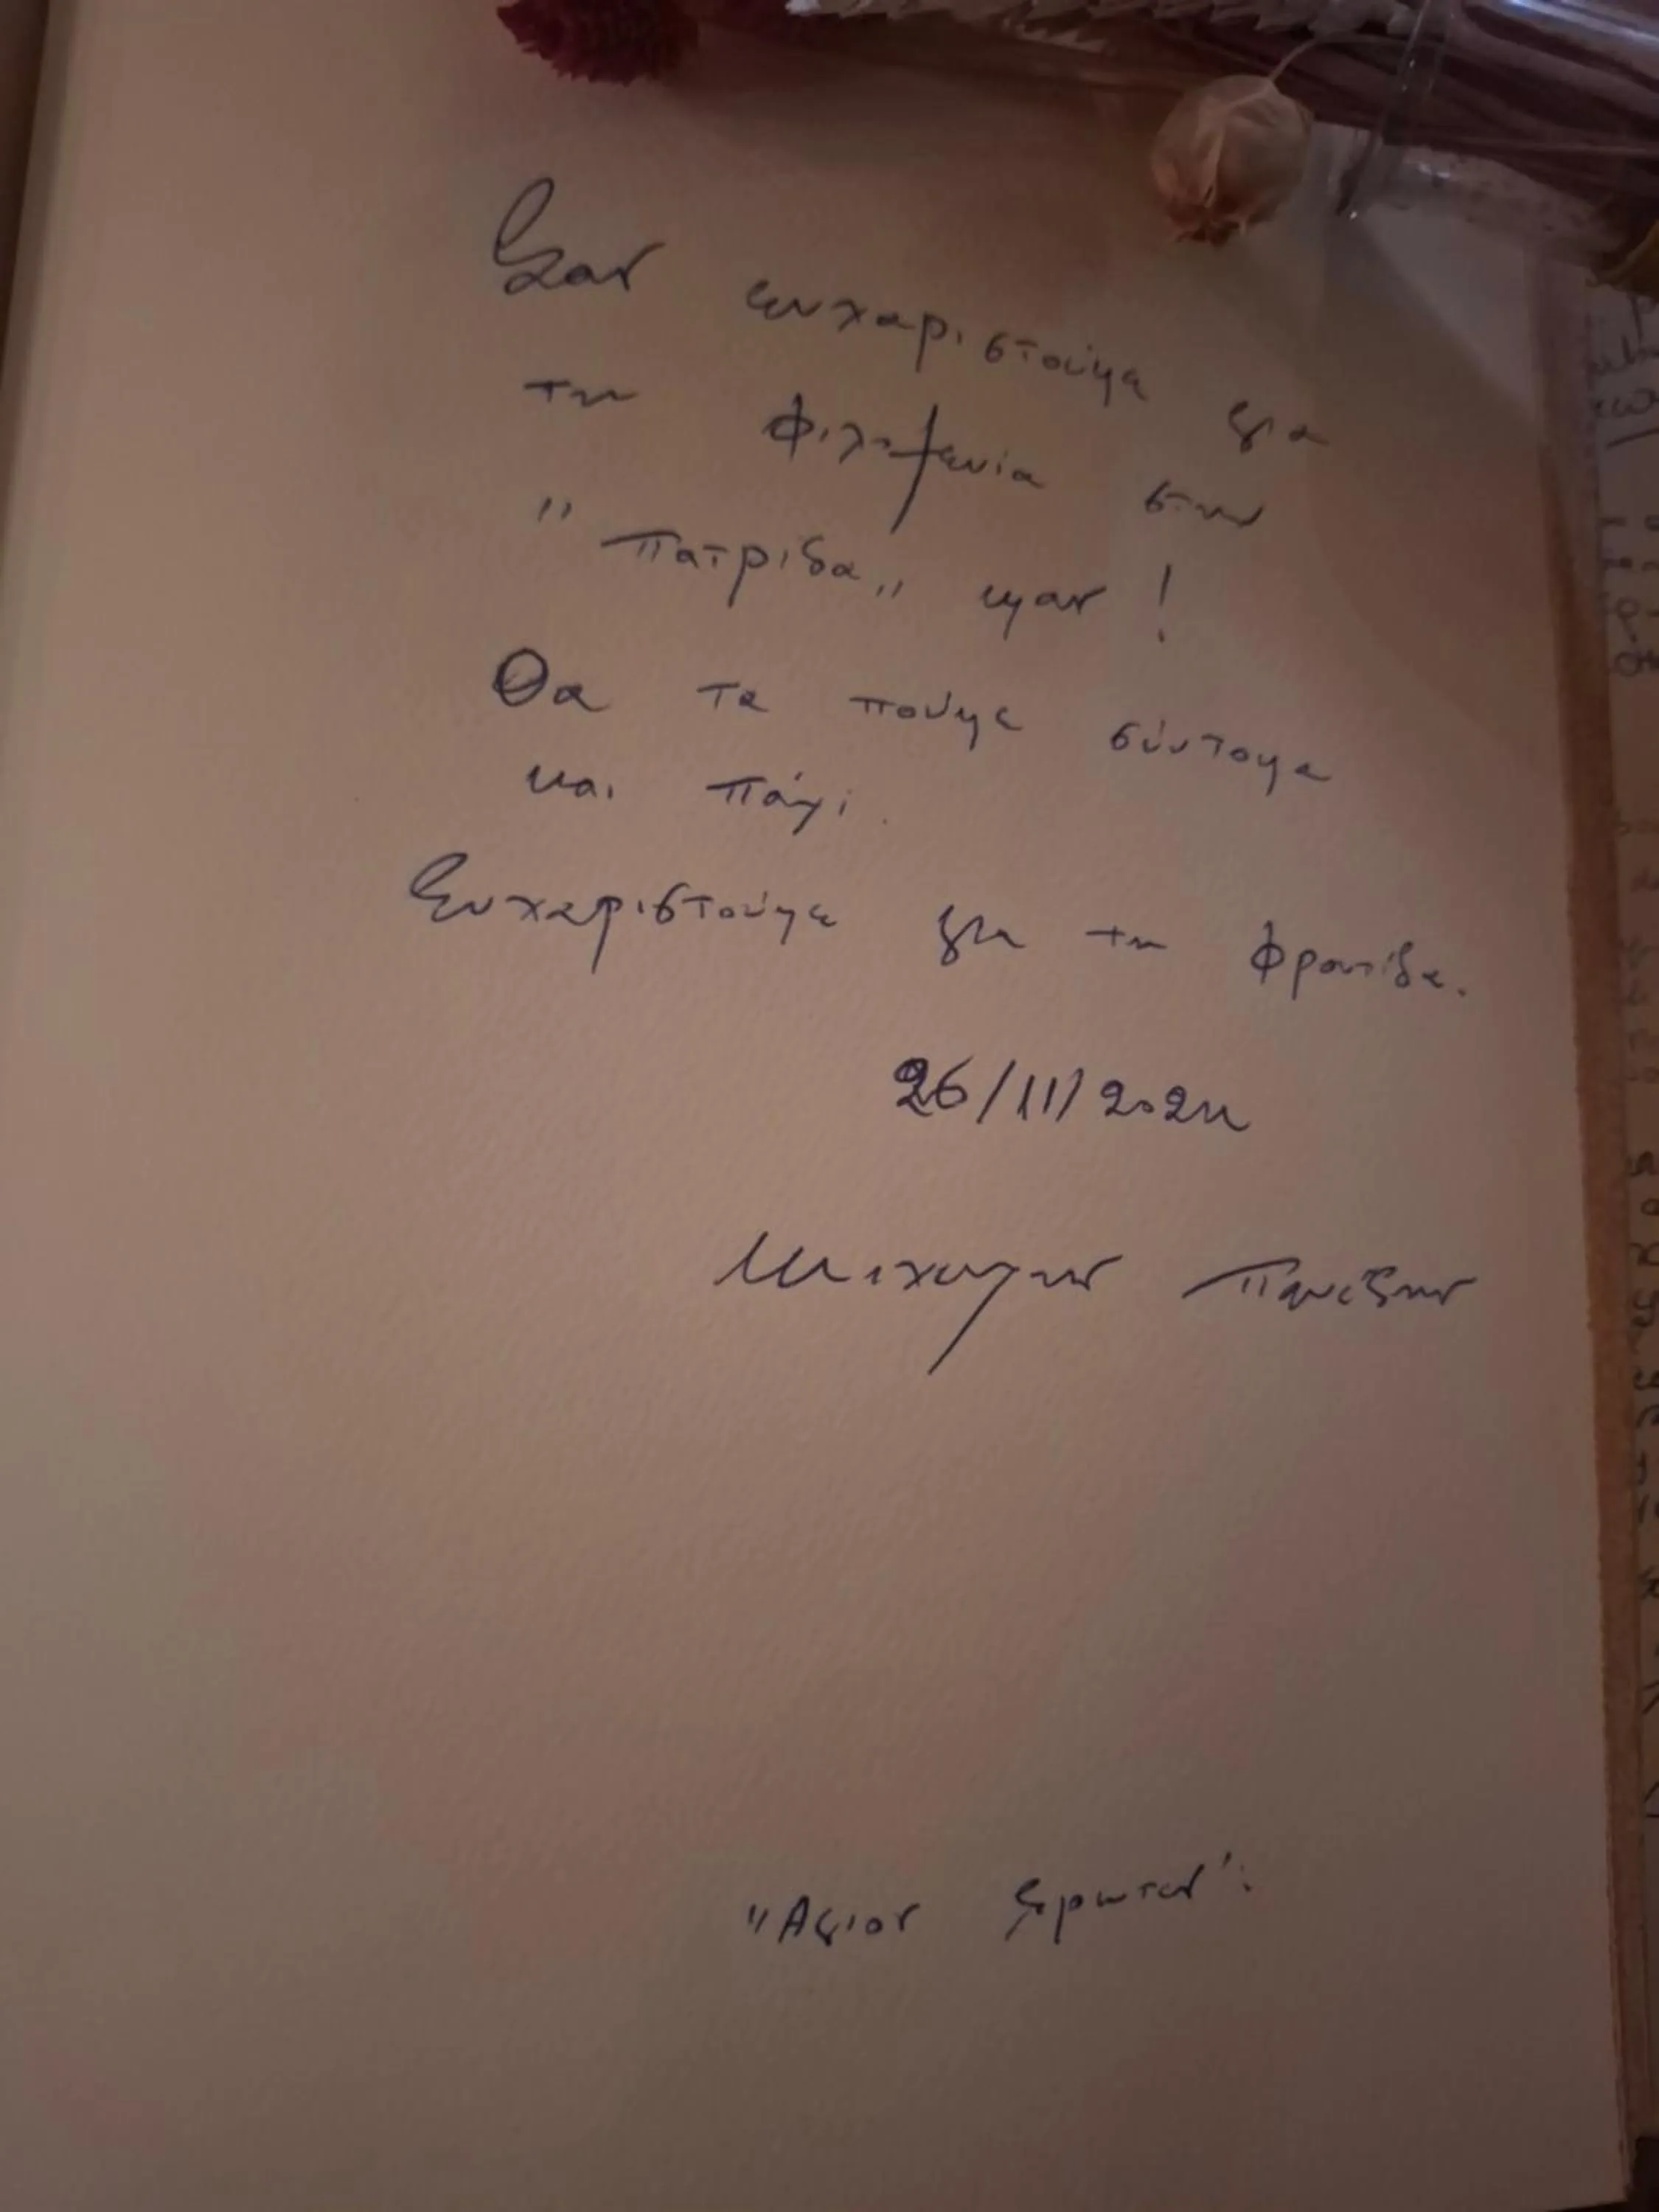 Σας ευχαριστούμε για
τη φιλοξενία στην
"Πατρίδα" μας!
Θα τα πούμε σύντομα
και πάλι.
Ευχαριστούμε για τη φροντίδα.
26/11/2024
"Άγιος Έρωτας".